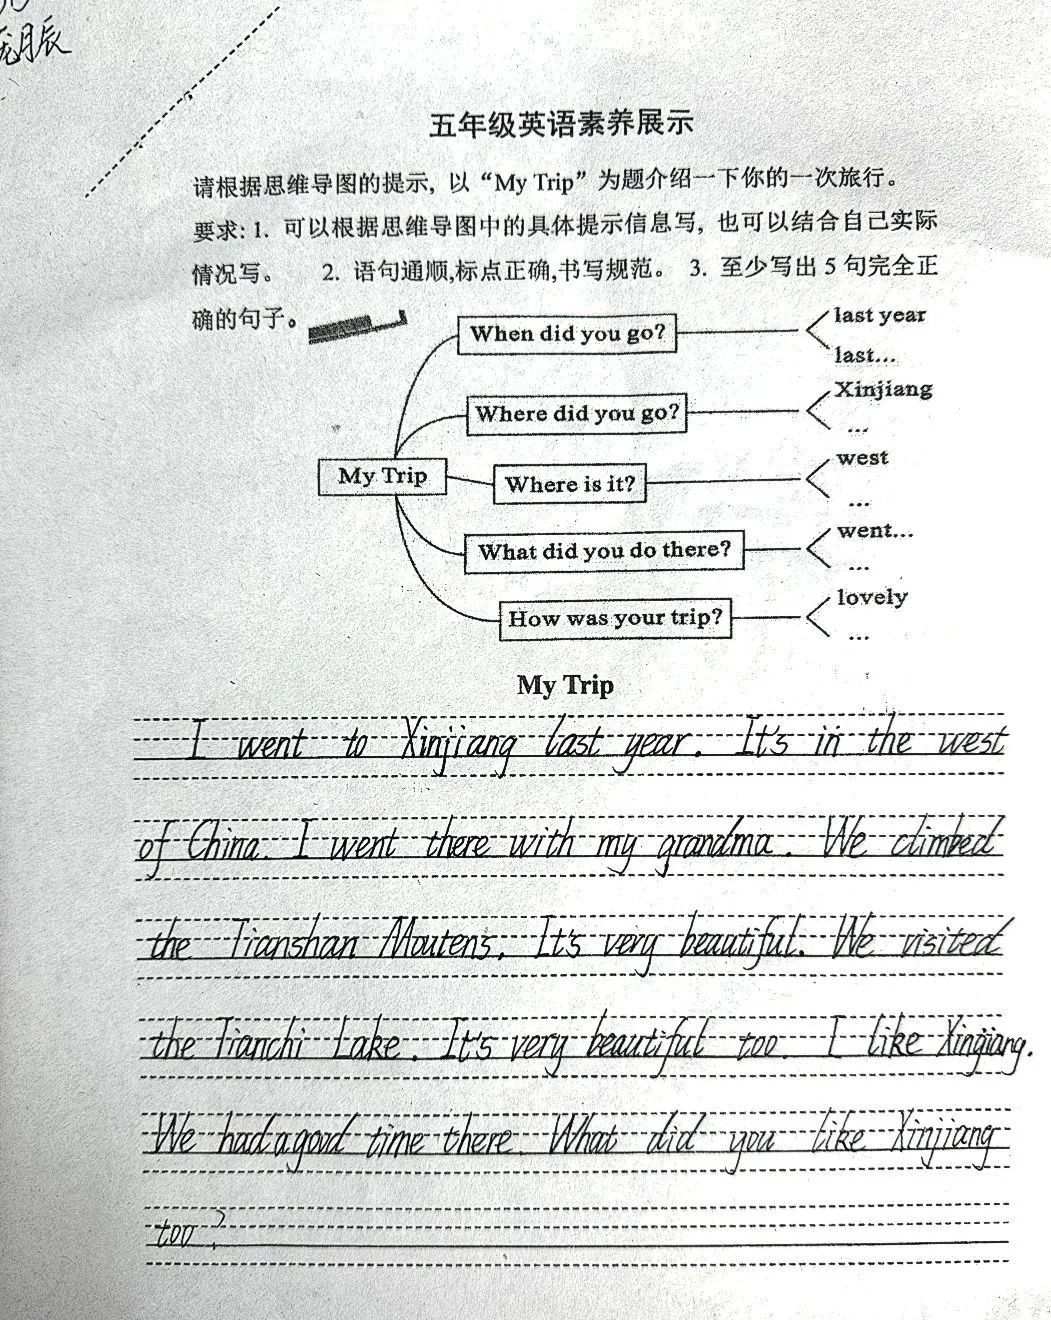 月辰
五年级英语素养展示
请根据思维导图的提示, 以“My Trip”为题介绍一下你的一次旅行。
要求: 1. 可以根据思维导图中的具体提示信息写, 也可以结合自己实际
情况写。 2. 语句通顺,标点正确,书写规范。 3. 至少写出 5 句完全正
确的句子。
When did you go?
last year
last...
Where did you go?
Xinjiang
...
My Trip
Where is it?
west
...
What did you do there?
went...
...
How was your trip?
lovely
...
My Trip
I went to Xinjiang last year. It's in the west
of China. I went there with my grandma. We climbed
the Tianshan Moutens. It's very beautiful. We visited
the Tianchi Lake. It's very beautiful too. I like Xinjiang.
We had a good time there. What did you like Xinjiang
too?